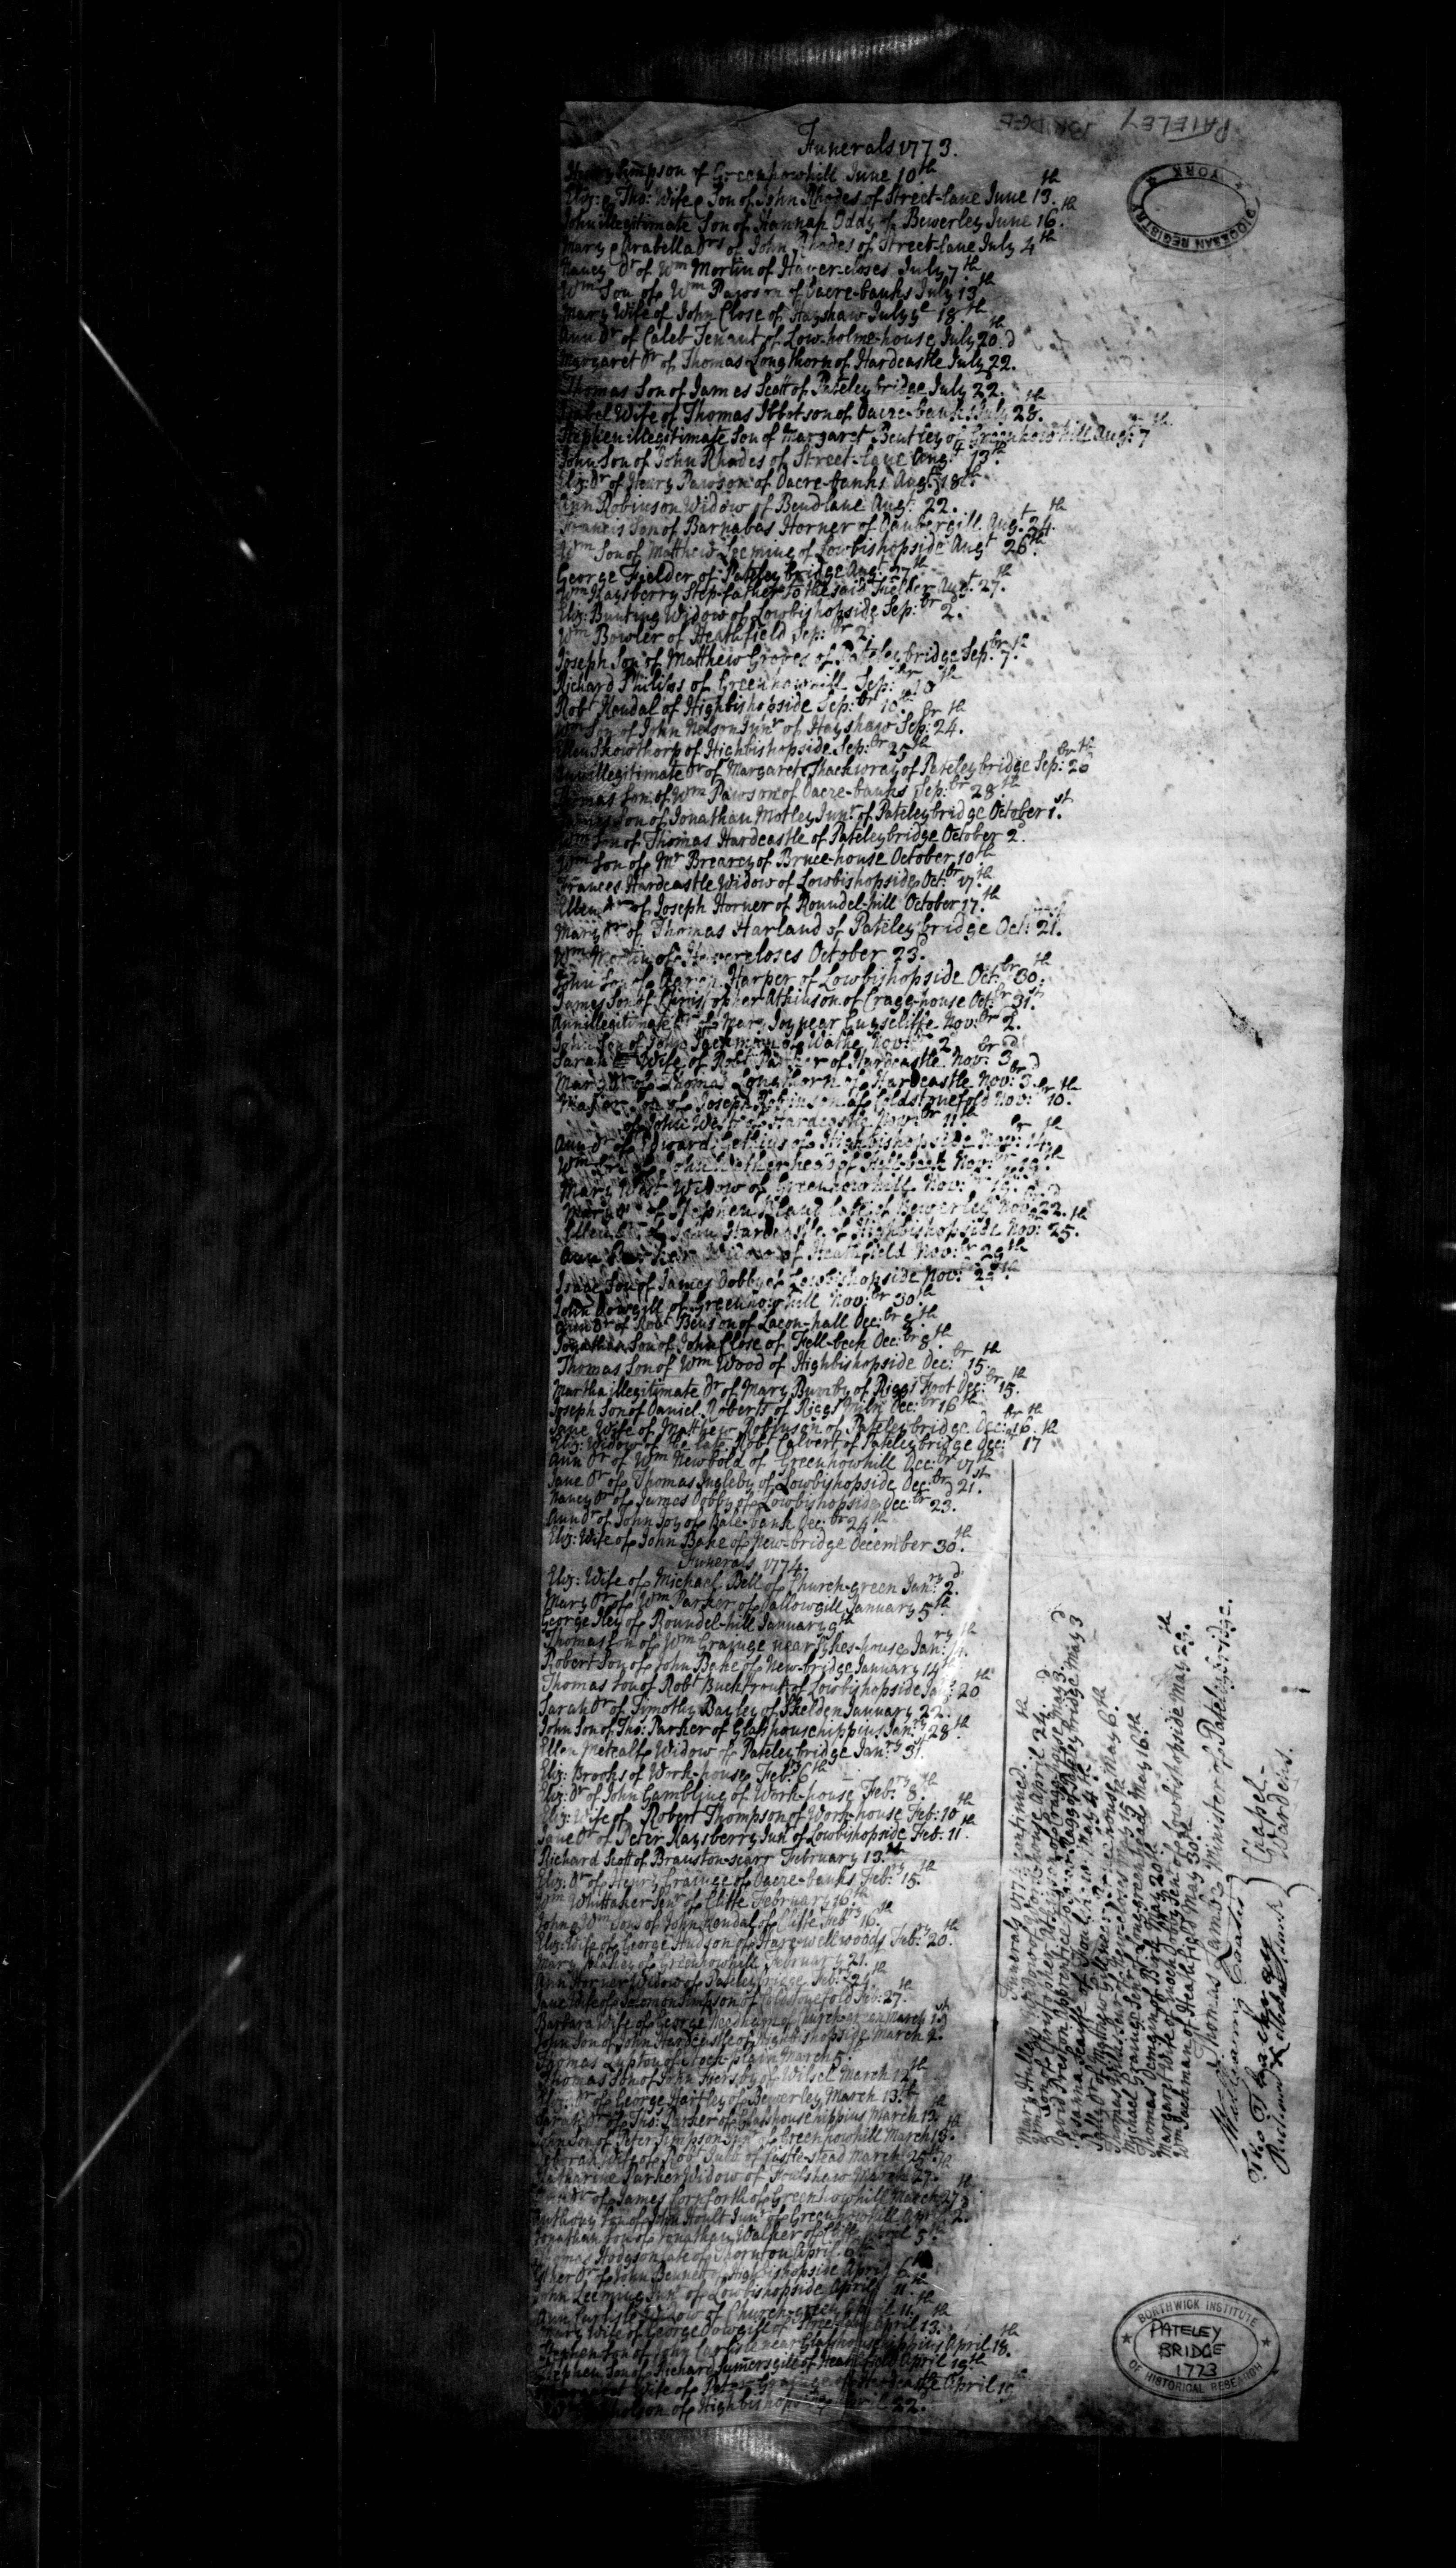 PATELEY BRIDGE
YORK DIOCESAN REGISTRY
Funerals 1773.
Henry Simpson of Greenhowhill June 10th
Eliz: & Tho: Wife & Son of John Rhodes of Street-lane June 13.th
John illegitimate Son of Hannah Oddy of Bewerley June 16.th
Mary & Arabella Drs of John Rhodes of Street-lane July 4th
Nancy Dr of Wm Mortin of Haver-closes July 7th
Wm Son of Wm Pawson of Dacre-banks July 13th
Mary Wife of John Close of Hayshaw July ye 18.th
Ann Dr of Caleb Tenant of Low-holme-house July 20.th
Margaret Dr of Thomas Longthorn of Hardcastle July 22.d
Thomas Son of James Scott of Pateleybridge July 22.
Isabel Wife of Thomas Ibbotson of Dacre-banks July 28.th
Stephen illegitimate Son of Margaret Bentley of Greenhowhill Augt: 7th
John Son of John Rhodes of Street-lane Augt 13th
Eliz: Dr of Henry Pawson of Dacre-banks Augt: 18th
Ann Robinson Widow of Bendlane Augt: 22.
Francis Son of Barnabas Horner of Daubergill Augt. 24.th
Wm Son of Matthew Leeming of Lowbishopside Augt 26th
George Fielder of Pateleybridge Augt 27th
Wm Raysberry Step-father to the said Fielder Augt. 27.th
Eliz: Bunting Widow of Lowbishopside Sep:br 2.
Wm Bowler of Heathfield Sep:br 2.
Joseph Son of Matthew Groves of Pateleybridge Sep:br 7.th
Richard Philips of Greenhowhill Sep:br 10th
Robt Kendal of Highbishopside Sep:br 10.th
Wm Son of John Nelson Junr of Hayshaw Sep:br 24.th
Ellen Skowthorp of Highbishopside Sep:br 25th
Ann illegitimate Dr of Margaret Thackwray of Pateleybridge Sep:br 26th
Thomas Son of Wm Pawson of Dacre-banks Sep:br 28.th
James Son of Jonathan Motley Junr. of Pateleybridge October 1.st
Wm Son of Thomas Hardcastle of Pateleybridge October 2.d
Wm Son of Mr Brearcy of Bruce-house October 10.th
Frances Hardcastle Widow of Lowbishopside Oct:br 17.th
Ellen Dr of Joseph Horner of Roundel-hill October 17.th
Mary Dr of Thomas Harland of Pateleybridge Oct: 21.
Wm Mortin of Havercloses October 23.d
John Son of Aaron Harper of Lowbishopside Oct:br 30.th
James Son of Christopher Atkinson of Cragg-house Oct:br 31st
Ann illegitimate Dr of Mary Joy near Guyscliffe Nov:br 2.
John Son of John Jackman of Wathe Nov:br 2d
Sarah Wife of Robt Parker of Hardcastle Nov:br 3d
Mary Dr of Thomas Longthorn of Hardcastle Nov:br 3.d
Son of Joseph Robinson of Coldstonefold Nov:br 10.th
of John West of Hardcastle Nov:br 11th
Ann Dr of Edward of Highbishopside Nov:br 14.th
Wm Son of John of Fell-beck Nov:br 19.th
Mary West Widow of Greenhowhill Nov:br 19.
Mary Dr of Stephen Bland late of Bewerley Nov:br 22.d
Ellen Dr of John Hardcastle of Highbishopside Nov:br 25.th
Ann Widow of Heathfield Nov:br 29th
Isaac Son of James Dobby of Lowbishopside Nov:br 29th
John Dowgill of Greenhowhill Nov:br 30.th
Ann Dr of Robt Benson of Lacon-hall Dec:br 8.th
Jonathan Son of John Close of Fell-beck Dec:br 8.th
Thomas Son of Wm Wood of Highbishopside Dec:br 15.th
Martha illegitimate Dr of Mary Burnby of Riggs Foot Dec:br 15.th
Joseph Son of Daniel Roberts of Riggs Miln Dec:br 16th
Jane Wife of Matthew Robinson of Pateleybridge Dec:br 16.th
Eliz: Widow of the late Robt Calvert of Pateleybridge Dec:br 17th
Ann Dr of Wm Newbold of Greenhowhill Dec:br 17th
Jane Dr of Thomas Ingleby of Lowbishopside Dec:br 21.st
Nancy Dr of James Dobby of Lowbishopside Dec:br 23.d
Ann Dr of John Joy of Bale-bank Dec:br 24th
Eliz: Wife of John Bake of New-bridge December 30.th
Funerals 1774.
Eliz: Wife of Michael Bell of Church-green Janry 2.d
Mary Dr of Wm Parker of Dallowgill January 5th
George Iley of Roundel-hill January 9th
Thomas Son of Wm Grainge near Sykes-house Jan:ry
Robert Son of John Bake of New-bridge January 14th
Thomas Son of Robt Buckfront of Lowbishopside Jan: 20th
Sarah Dr of Timothy Bayley of Skelden January 22.
John Son of Tho: Parker of Glasshousehippins Jan:ry 28.th
Ellen Metcalfe Widow of Pateleybridge Janry 31.st
Eliz: Brooks of Work-house Feb:ry 6th
Eliz: Dr of John Gambline of Work-house Feb:ry 8.th
Eliz: Wife of Robert Thompson of Work-house Feb: 10th
Jane Dr of Peter Raysberry Junr of Lowbishopside Feb: 11th
Richard Scott of Branston-scarr February 13.th
Eliz: Dr of Henry Grainge of Dacre-banks Feb:ry 15.th
Wm Whittaker Senr of Cliffe February 16.th
John & Wm Sons of John Kendal of Cliffe Feb:ry 16.th
Eliz: Wife of George Hudson of Harewellwoods Feb:ry 20.th
Mary of Greenhowhill February 21.
Ann Horner Widow of Pateleybridge Feb:ry 24.th
Jane Wife of Solomon Simpson of Coldstonefold Feb: 27.th
Barbara Wife of George Needham of Church-green March 1.st
John Son of John Hardcastle of Highbishopside March 2.d
Thomas Lupton of Stock-plain March 5.
Thomas Son of John of Wilsel March 12th
Eliz: Dr of George Hartley of Bewerley March 13.th
Sarah Dr of Tho: Parker of Glasshousehippins March 13.th
Son of Peter Simpson Junr of Greenhowhill March 15.th
Deborah Wife of Robt of Castle-stead March 25th
Katharine Parker Widow of Foulshaw March 27.th
Dr of James Cornforth of Greenhowhill March 27.th
Anthony Son of John Hoult Junr of Greenhowhill April 2.d
Jonathan Son of Jonathan Walker of Cliffe April 5th
Thomas Hodgson late of Thornton April 6th
Esther Dr of John Bennett of Highbishopside April 6th
John Leeming Junr of Lowbishopside April 11.th
Ann Carlisle Widow of Church-green April 11.th
Mary Wife of George Dowgill of Street-lane April 13.th
Stephen Son of John Carlisle near Glasshousehippins April 18.th
Stephen Son of Richard Sumersgill of Heathfield April 19th
Margaret Wife of Peter Grainge of Hardcastle April 19th
of Highbishopside April 22.
Funerals 1774 continued.
Mary Hullay Widow of Work-house April 24.th
Wm Son of Christopher Atkinson of Cragg-house May 3.d
David Preston Apprentice to Raggs Pateleybridge May 3d
Susanna Scaife of May 4th
Sally Dr of Matthew house May 6.th
Thomas of Haver-closes May 15th
Michael Grainge Senr of Longgreenhead May 16.th
Thomas Deming of May 20th
Margaret Wife of Enoch Dobby Senr of Lowbishopside May 29.th
Wm Jackman of Heathfield May 30.th
Thomas Lamb Minister of Pateleybridge.
William Coates
Tho Thackwray
Richard
Chapel-
Wardens.
BORTHWICK INSTITUTE
PATELEY
BRIDGE
1773
OF HISTORICAL RESEARCH